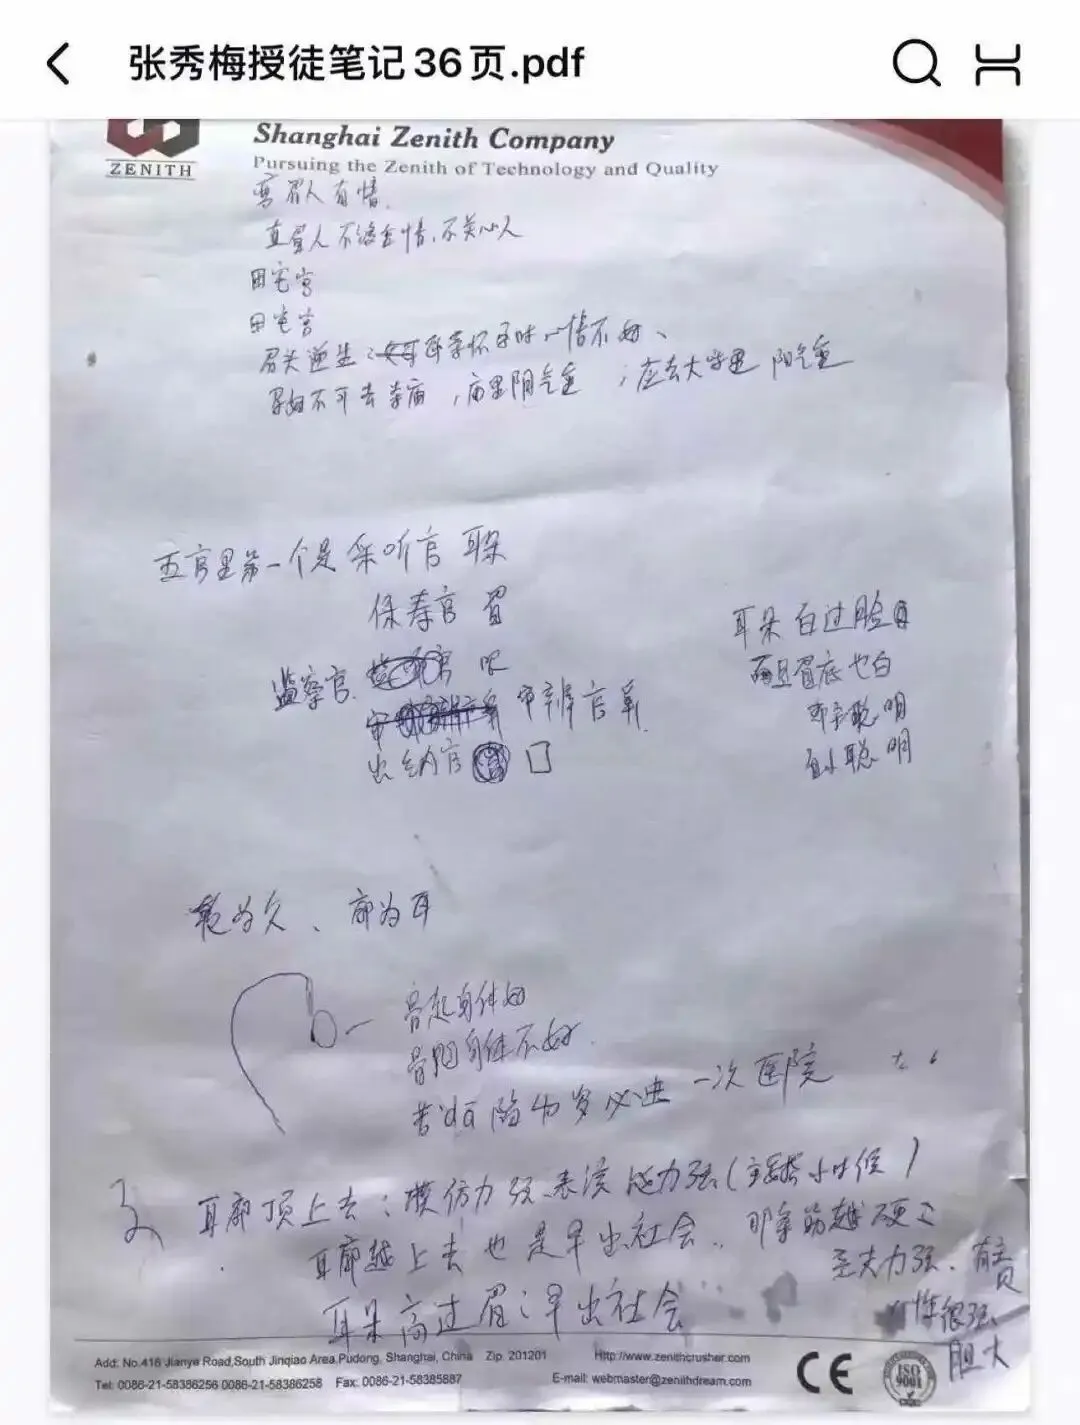 张秀梅授徒笔记36页.pdf
ZENITH
Shanghai Zenith Company
Pursuing the Zenith of Technology and Quality
弯眉人有情.
直眉人不讲
情.不关心人
田宅宫
田宅宫
眉头逆生:
怀孕时心情不好、
孕妇不可去寺庙,庙里阴气重;应去大学里 阳气重
五官里第一个是采听官 耳朵
保寿官 眉
监察官. 眼
审辨官鼻.
出纳官 口
耳朵白过脸
而且眉底也白
聪明
聪明
轮为
、廓为耳
骨起身体好
骨凹身体不好.
若
陷
岁必进一次医院
耳廓顶上去:模仿力强.表演能力强(
小时候)
耳廓越上去也是早出社会.
筋越硬:
力强、有主
性很强、
胆大
耳朵高过眉:早出社会
Add: No.416 Jianye Road,South Jinqiao Area,Pudong, Shanghai, China Zip. 201201 Http://www.zenithcrusher.com
Tel: 0086-21-58386256 0086-21-58386258 Fax: 0086-21-58385887 E-mail: webmaster@zenithdream.com
CE
ISO 9001